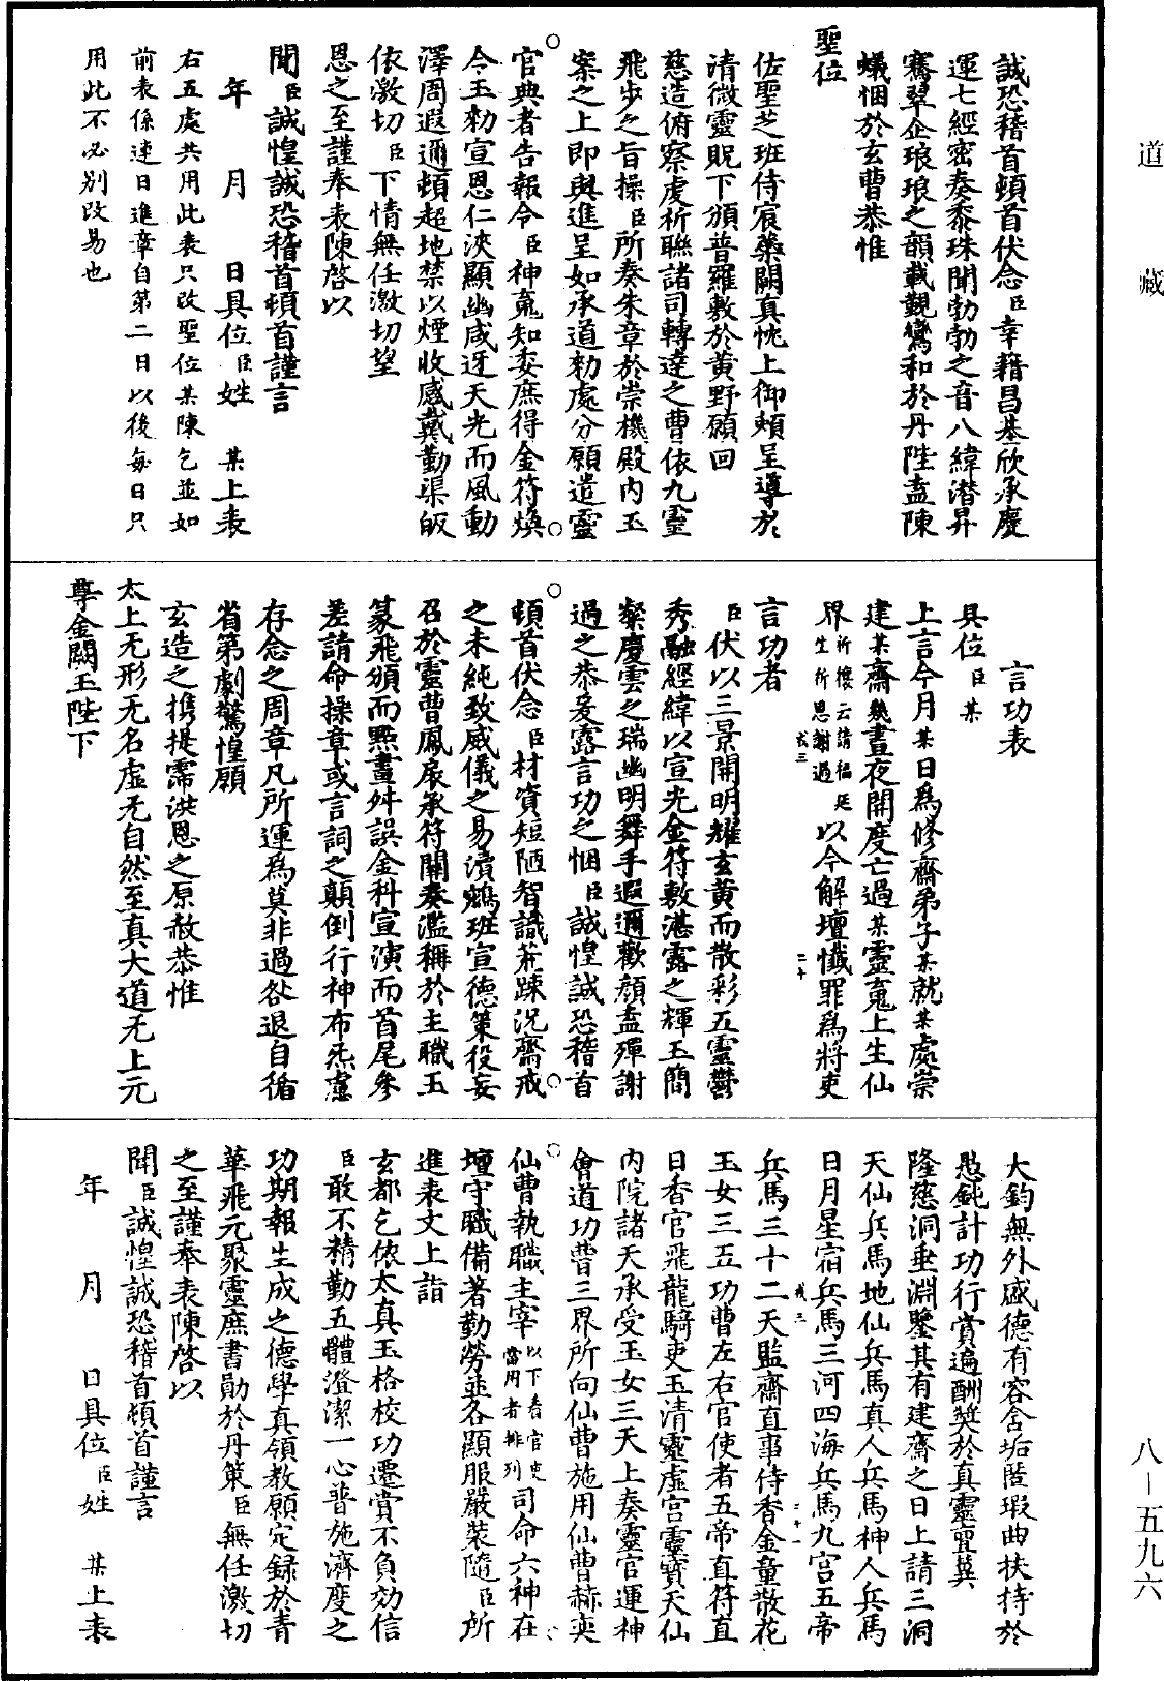 道藏
誠恐稽首頓首伏念臣幸藉昌基欣承慶
運七經密奏黍珠聞勃勃之音八緯潛昇
騫翠企琅琅之韻載覿鸞和於丹陛盍陳
蟻悃於玄曹恭惟
聖位
佐聖芝班侍宸蘂闕真忱上御頰呈導於
清微靈貺下頒普羅敷於黃野願回
慈造俯察虔祈聯諸司轉達之曹依九靈
飛步之旨操臣所奏朱章於崇機殿內玉
案之上即與進呈如承道勑處分願遣靈
官典者告報令臣神䰟知委庶得金符煥
今玉勑宣恩仁浹顯幽咸迓天光而風動
澤周遐邇頓超地禁以煙收感戴勤渠皈
依激切臣下情無任激切望
恩之至謹奉表陳啓以
聞臣誠惶誠恐稽首頓首謹言
年 月 日具位臣姓 某上表
右五處共用此表只改聖位某陳乞並如
前表係連日進章自第二日以後每日只
用此不必別改易也
言功表
具位臣某
上言今月某日為修齋弟子某就某處崇
建某齋幾晝夜開度亡過某靈䰟上生仙
界祈懷云請福延生祈恩謝過以今解壇懺罪為將吏
言功者
臣伏以三景開明耀玄黃而散彩五靈鬱
秀融經緯以宣光金符敷湛露之輝玉簡
粲慶雲之瑞幽明舞手遐邇歡顏盍殫謝
過之恭爰露言功之悃臣誠惶誠恐稽首
頓首伏念臣材資短陋智識荒踈況齋戒
之未純致威儀之易瀆鵷班宣德策役妄
召於靈曹鳳扆承符關奏濫稱於主職玉
篆飛頒而點畫舛誤金科宣演而首尾參
差請命操章或言詞之顛倒行神布炁慮
存念之周章凡所運為莫非過咎退自循
省第劇驚惶願
玄造之攜提霈洪恩之原赦恭惟
太上无形无名虛无自然至真大道无上元
尊金闕玉陛下
大鈞無外盛德有容舍垢匿瑕曲扶持於
愚鈍計功行賞遍酬獎於真靈亶冀
隆慈洞垂淵鑒其有建齋之日上請三洞
天仙兵馬地仙兵馬真人兵馬神人兵馬
日月星宿兵馬三河四海兵馬九宮五帝
兵馬三十二天監齋直事侍香金童散花
玉女三五功曹左右官使者五帝直符直
日香官飛龍騎吏玉清靈虛宮靈寶天仙
內院諸天承受玉女三天上奏靈官運神
會道功曹三界所向仙曹施用仙曹赫奕
仙曹執職主宰以下看官吏當用者排列司命六神在
壇守職備著勤勞並各顯服嚴裝隨臣所
進表文上詣
玄都乞依太真玉格校功遷賞不負効信
臣敢不精勤五體澄潔一心普施濟度之
功期報生成之德學真領教願定録於青
華飛元聚靈庶書勛於丹策臣無任激切
之至謹奉表陳啓以
聞臣誠惶誠恐稽首頓首謹言
年 月 日具位臣姓 某上表
八—五九六